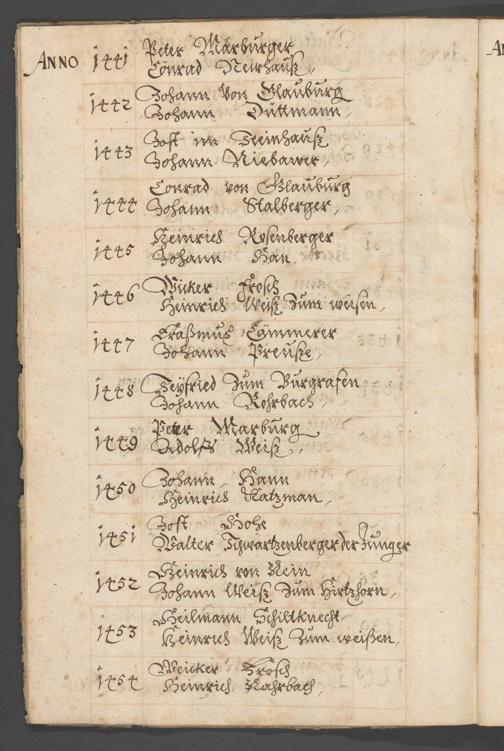 ANNO 1441 Peter Marburger
Conrad Neuhauß,
1442 Johann Von Glauburg
Johann Duttmann,
1443 Jost im Steinhauß
Johann Niebauer,
1444 Conrad von Glauburg
Johann Stalberger,
1445 Heinrich Rosenberger
Johann Han,
1446 Wicker Frosch
Heinrich Weiß Zum weisen,
1447 Eraßmuß Cämmerer
Johann Preuße,
1448 Seyfried Zum Burgrafen
Johann Rohrbach,
1449 Peter Marburg
Adolff Weiß,
1450 Johann Hann
Heinrich Katzman,
1451 Jost
Walter Schwartzenberger der Junger
1452 Heinrich von Rein
Johann Weiß Zum Hirtzhorn,
1453 Heilmann Schiltknecht
Heinrich Weiß Zum weißen,
1454 Weicker Frosch
Heinrich Rohrbach,